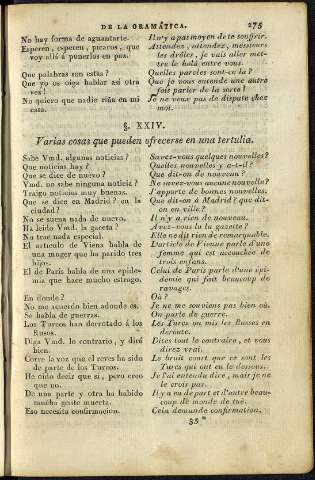 DE LA GRAMÁTICA. 275
No hay forma de aguantarte.
Esperen, esperen, pícaros, que
voy allá á ponerlos en paz.
Que palabras son estas?
Que yo os oiga hablar así otra
vez!
No quiero que nadie riña en mi
casa.
Il n'y a pas moyen de te souffrir.
Attendez, attendez, messieurs
les drôles, je vais aller met-
tre le holà entre vous.
Quelles paroles sont-ce là?
Que je vous entende une autre
fois parler de la sorte!
Je ne veux pas de dispute chez
moi.
§. XXIV.
Varias cosas que pueden ofrecerse en una tertulia.
Sabe Vmd. algunas noticias?
Que noticias hay?
Que se dice de nuevo?
Vmd. no sabe ninguna noticia?
Traigo noticias muy buenas.
Que se dice en Madrid? en la
ciudad?
No se suena nada de nuevo.
Ha leido Vmd. la gaceta?
No trae nada especial.
El artículo de Viena habla de
una muger que ha parido tres
hijos.
El de París habla de una epide-
mia que hace mucho estrago.
En donde?
No me acuerdo bien adonde es.
Se habla de guerras.
Los Turcos han derrotado á los
Rusos.
Diga Vmd. lo contrario, y dirá
bien.
Corre la voz que el reves ha sido
de parte de los Turcos.
He oido decir que sí, pero creo
que no.
De una parte y otra ha habido
mucha gente muerta.
Eso necesita confirmacion.
Savez-vous quelques nouvelles?
Quelles nouvelles y a-t-il?
Que dit-on de nouveau?
Ne savez-vous aucune nouvelle?
J'apporte de bonnes nouvelles.
Que dit-on à Madrid? que dit-
on en ville?
Il n'y a rien de nouveau.
Avez-vous lu la gazette?
Elle ne dit rien de remarquable.
L'article de Vienne parle d'une
femme qui est accouchée de
trois enfans.
Celui de Paris parle d'une épi-
démie qui fait beaucoup de
ravages.
Où?
Je ne me souviens pas bien où.
On parle de guerre.
Les Turcs ou mis les Russes en
déroute.
Dites tout le contraire, et vous
direz vrai.
Le bruit court que ce sont les
Turcs qui ont eu le dessous.
Je l'ai entendu dire, mais je ne
le crois pas.
Il y a eu de part et d'autre beau-
coup de monde de tué.
Cela demande confirmation.